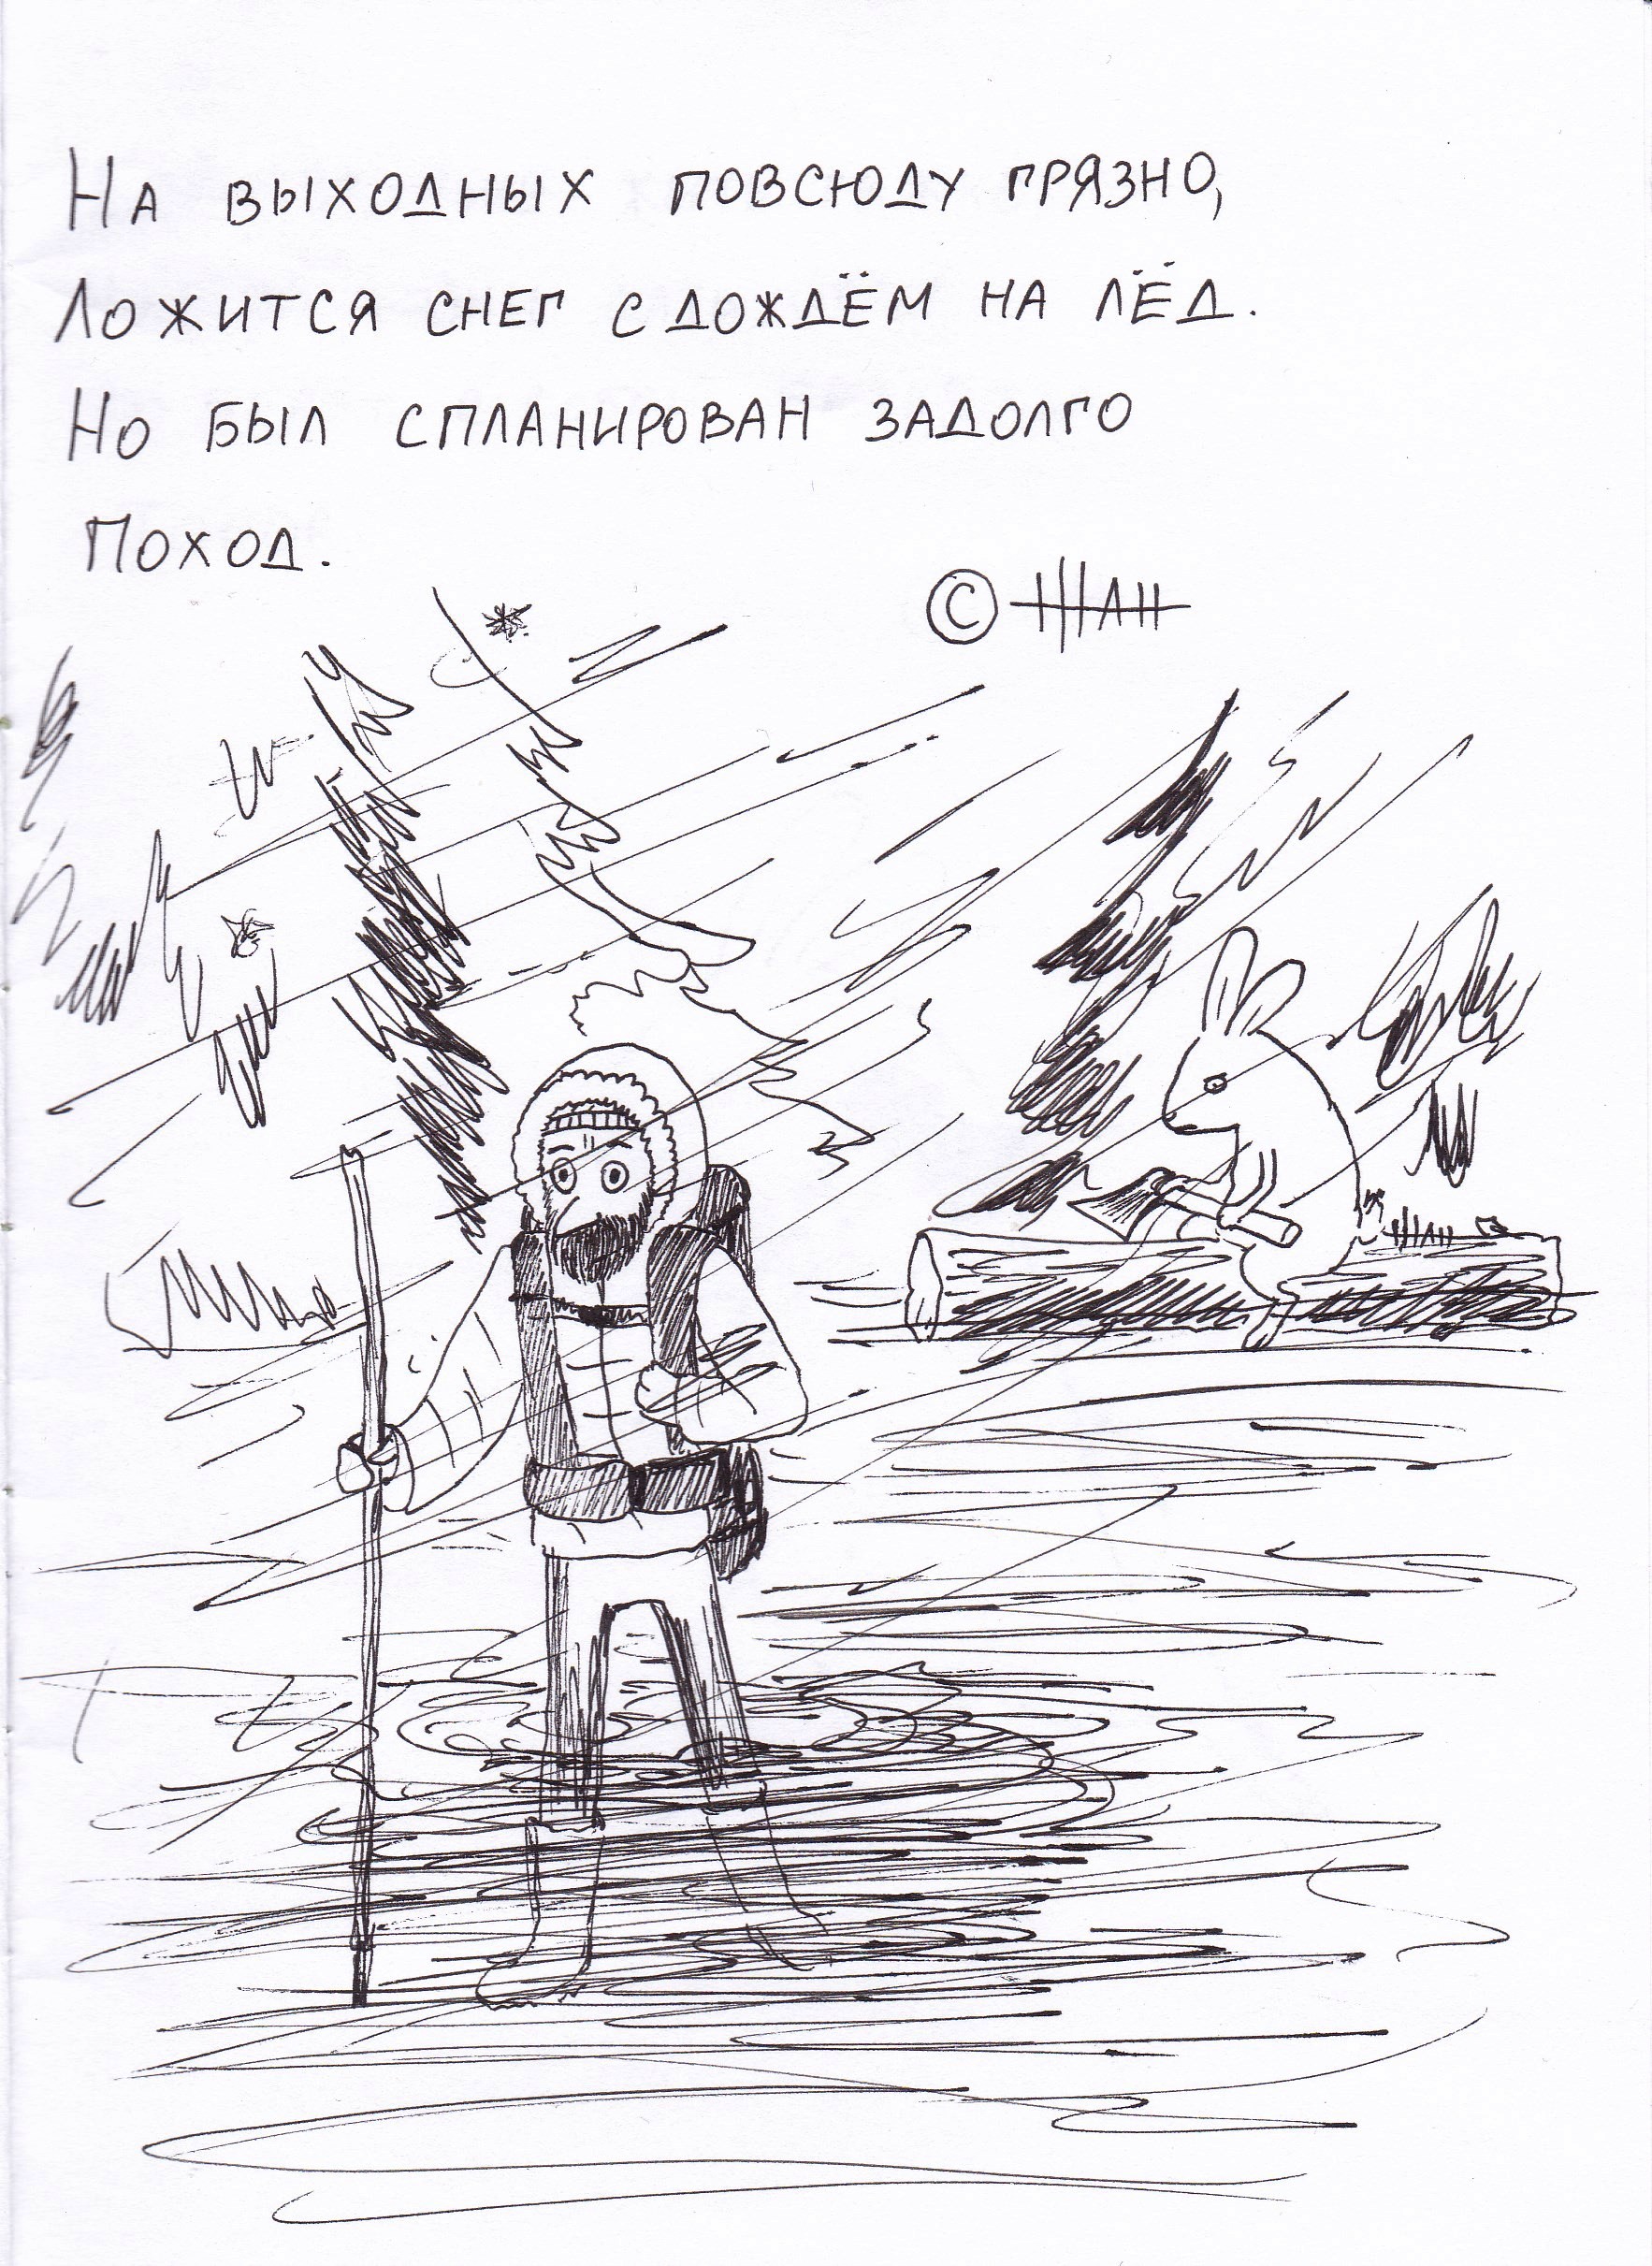 На выходных повсюду грязно,
Ложится снег с дождём на лёд.
Но был спланирован задолго
Поход.
© ЖАН
ЖАН